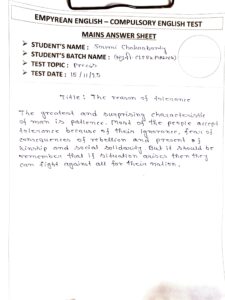 EMPYREAN ENGLISH – COMPULSORY ENGLISH TEST
MAINS ANSWER SHEET
➤ STUDENT'S NAME : Chakraborty
➤ STUDENT'S BATCH NAME :
➤ TEST TOPIC : Precis
➤ TEST DATE : 15/11/25
Title: The reason of tolerance
The greatest and surprising characteristic
of man is patience. Most of the people accept
tolerance because of their ignorance, fear of
consequences of rebellion and present of
kinship and social solidarity. But it should be
remember that if situation arises then they
can fight against all for their nation.